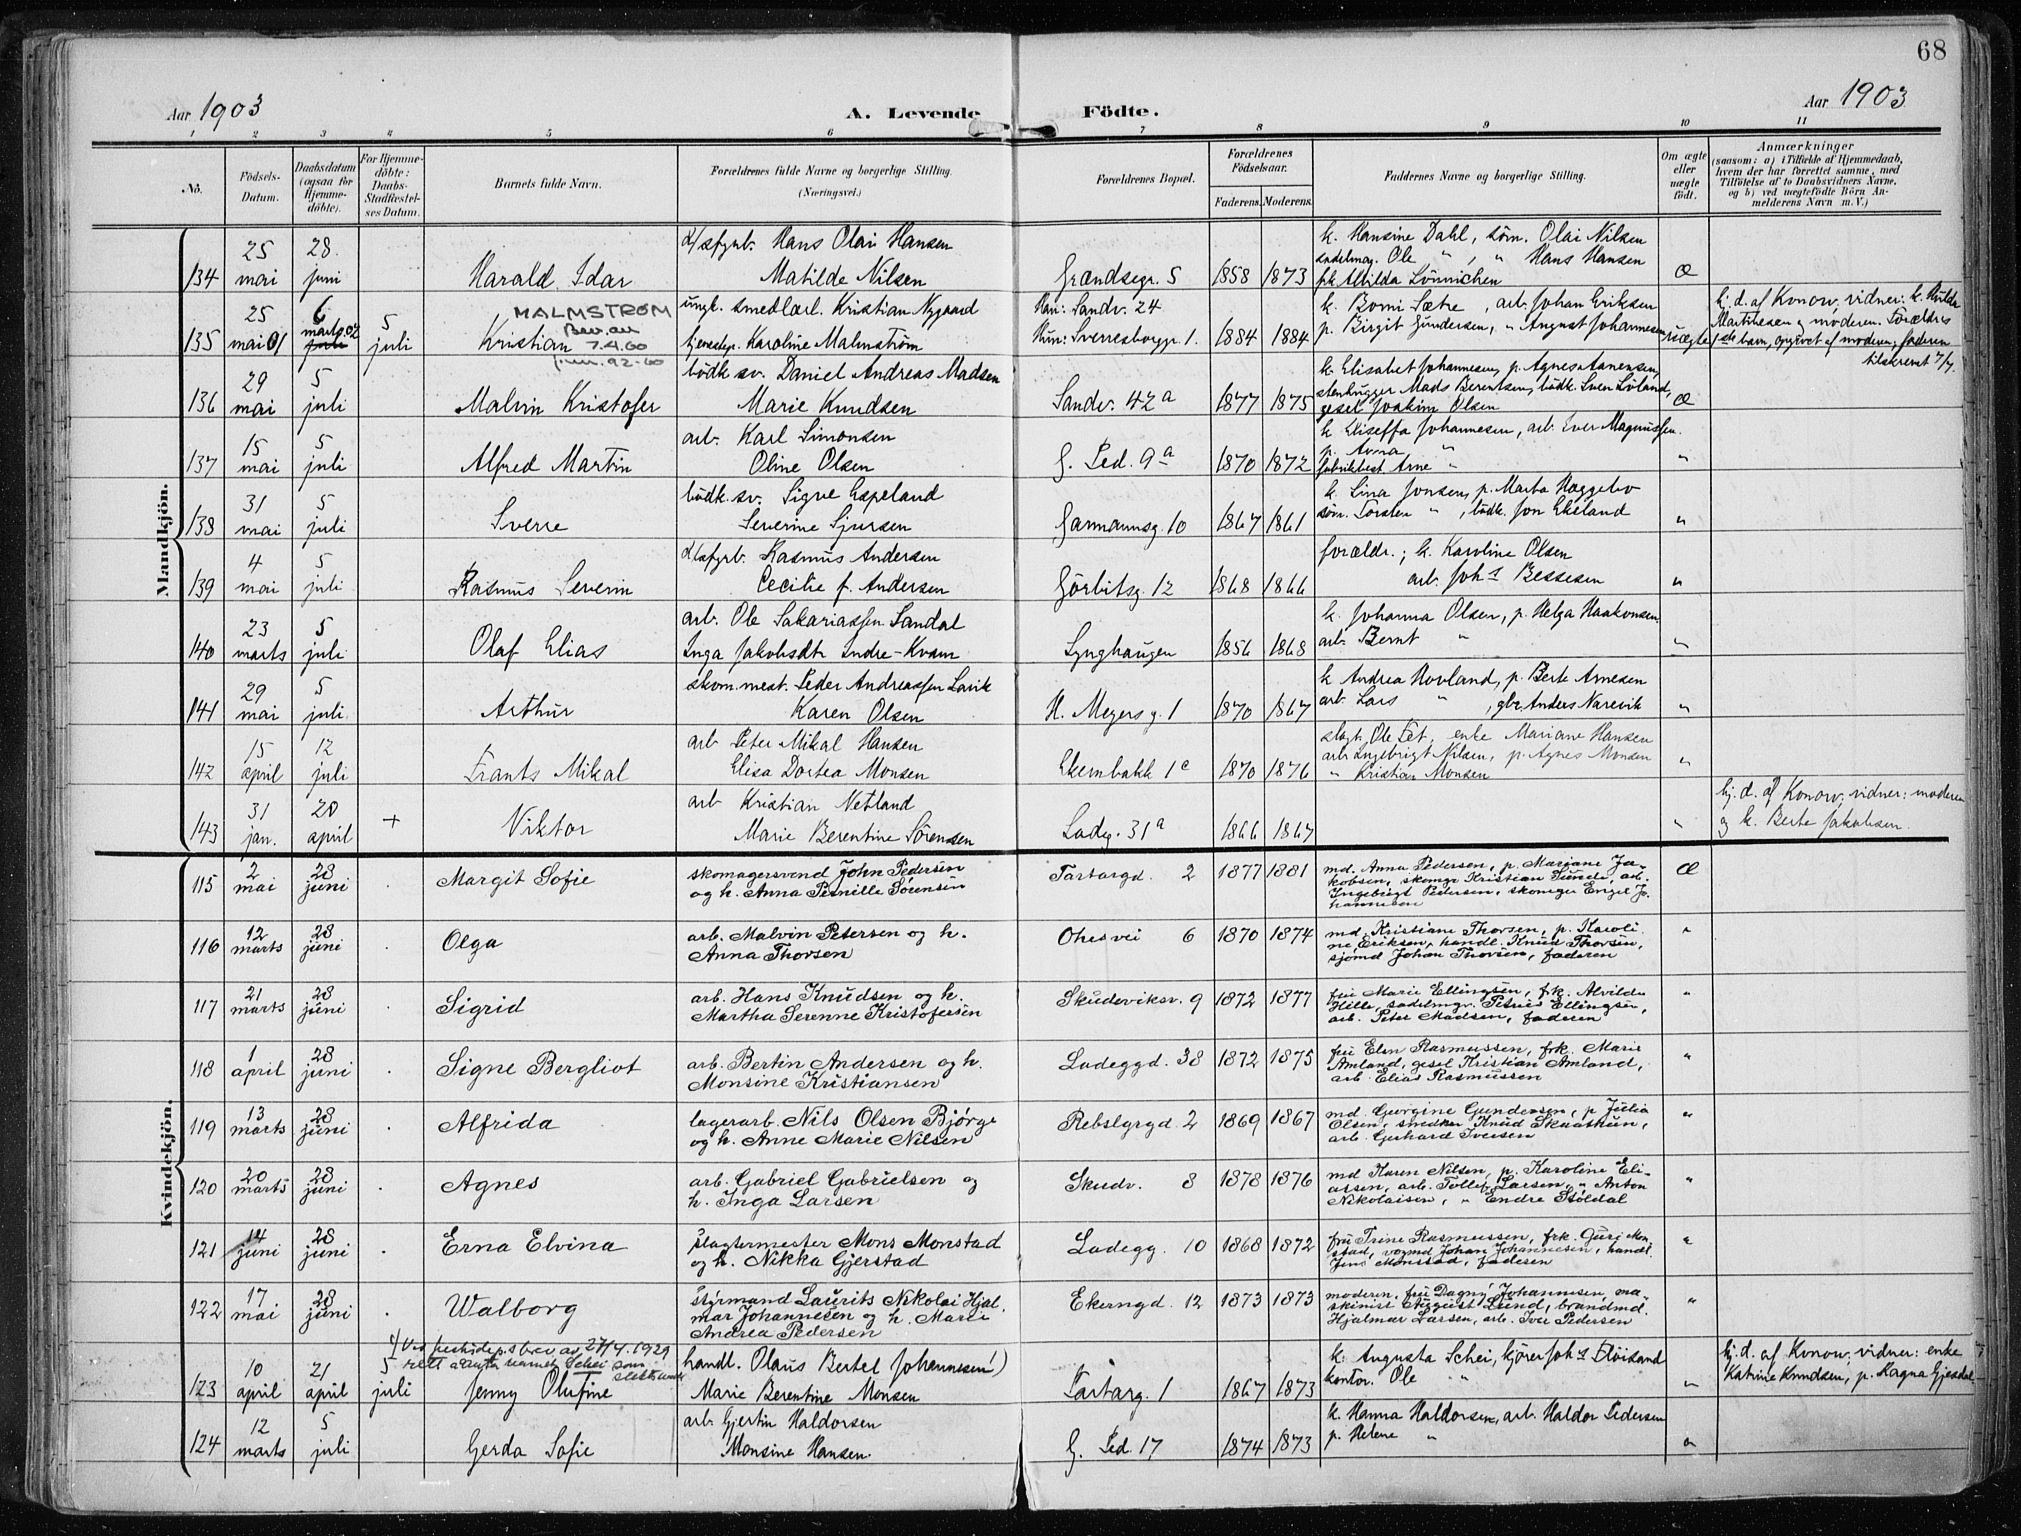 68
Aar 1903
A. Levende Födte.
Aar 1903
1 2 3 4 5 6 7 8 9 10 11
No.
Födsels-Datum.
Daabsdatum (ogsaa for Hjemme-döbte).
For Hjemme-döbte: Daabs-Stadfæstel-ses Datum.
Barnets fulde Navn.
Forældrenes fulde Navne og borgerlige Stilling.
(Næringsvei.)
Forældrenes Bopæl.
Forældrenes Födselsaar.
Faderens. Moderens.
Faddernes Navne og borgerlige Stilling.
Om ægte eller uægte födt.
Anmærkninger
(saasom: a) i Tilfælde af Hjemmedaab,
hvem der har forrettet samme, med
Tilföielse af to Daabsvidners Navne,
og b) ved uægtefödte Börn An-
melderens Navn m. V.)
Mandkjön.
134 25 mai 28 juni Harald Idar
Hans Olai Hansen
Matilde Nilsen
Grændsegr. 5 1858 1873
k. Hansine Dahl, söm. Olai Nilsen
sadelmag. Ole " , " Hans Hansen
frk. Alvilda Sönnichen
Æ
135 25 mai 01 6 marts 02 juli 5 juli Kristian
MALMSTRØM
Bev. av
7.4.60
ungk. smedlærl. Kristian Nygaard
tjenestep. Karoline Malmström
Han: Sandv. 24
Hun: Sverresborggr. 1. 1884 1884
k. Bomi Sætre, arb. Johan Eriksen
p. Birgit Gundersen, " August Johannesen
uægte
hj. d. af Konow, vidner: k. Hulda
Martinesen og moderen. Forældres
1ste barn, opgivet af moderen, faderen
tilskrevet 7/7.
136 29 mai 5 juli Malvin Kristofer
bödk. sv. Daniel Andreas Madsen
Marie Knudsen
Sandv. 42a 1877 1875
k. Elisabet Johannesen, p. Agnes Aanensen,
stenhugger Mads Berentsen, bödk. Sven Löland,
gesel Joakim Olsen
Æ
137 15 mai 5 juli Alfred Martin
arb. Karl Simonsen
Oline Olsen
G. Sed. 9a 1870 1872
k. Eliseffa Johannesen, arb. Ever Magnussen.
p. Anna "
fabrikbest. Arne "
"
138 31 mai 5 juli Sverre
bödk. sv. Sigve Espeland
Severine Sjursen
Garmannsg. 10 1867 1861
k. Lina Jonsen, p. Marta Hæggebo
söm. Torsten " , bödk. Jon Ekeland
"
139 4 mai 5 juli Rasmus Severin
Rasmus Andersen
Cecilie f. Andersen
Görbitsg. 12 1868 1866
forældr.; k. Karoline Olsen
arb. Johs Bessesen
"
140 23 marts 5 juli Olaf Elias
arb. Ole Sakariassen Sandal
Inga Jakobsdtr. Indre-Kvam
Lynghaugen 1856 1868
k. Johanna Olsen, p. Helga Haakonsen
arb. Bernt "
"
141 29 mai 5 juli Arthur
skom. mest. Peder Andreassen Lavik
Karen Olsen
H. Meyersg. 1 1870 1867
k. Andrea Hovland, p. Berte Arnesen
arb. Lars " , gbr. Anders Narevik
"
142 15 april 12 juli Frants Mikal
arb. Peter Mikal Hansen
Elisa Dortea Monsen
Ekernbakk 1c 1870 1876
slagt. Ole Fet, enke Mariane Hansen
arb. Ingebrigt Nilsen, p. Agnes Monsen
" Kristian Monsen
"
143 31 jan. 20 april + Viktor
arb. Kristian Netland
Marie Berentine Sörensen
Ladeg. 31a 1866 1867
"
hj. d. af Konow, vidner: moderen
og k. Berte Jakobsen.
Kvindekjön.
115 2 mai 28 juni Margit Sofie
skomagersvend John Pedersen
og h. Anna Pernille Sörensen
Tartargd. 2 1877 1881
md. Anna Pedersen, p. Mariane Ja-
kobsen, skomgr Kristian Sunde, ad.
Ingebrigt Pedersen, skomgr Engel Jo-
hannesen
Æ
116 12 marts 28 juni Olga
arb. Malvin Petersen og h.
Anna Thorsen
Ohesvei 6 1870 1874
md. Kristiane Thorsen, p. Karoli-
ne Eriksen, handl. Knud Thorsen,
sjömd Johan Thorsen, faderen
"
117 21 marts 28 juni Sigrid
arb. Hans Knudsen og h.
Martha Serenne Kristofersen
Skudeviksv. 9 1872 1877
fru Marie Ellingsen, frk. Alvilde
Hille, sadelmgr. Petrus Ellingsen,
arb. Peter Madsen, faderen
"
118 1 april 28 juni Signe Bergliot
arb. Bertin Andersen og h.
Monsine Kristiansen
Ladeggd. 38 1872 1875
fru Elen Rasmussen, frk. Marie
Amland, gesel Kristian Amland,
arb. Elias Rasmussen
"
119 13 marts 28 juni Alfrida
lagerarb. Nils Olsen Bjørge
og h. Anne Marie Nilsen
Rebslgrgd. 2 1869 1867
md. Georgine Gundersen, p. Julia
Olsen, snedker Knud Skaathun,
arb. Gerhard Iversen
"
120 20 marts 28 juni Agnes
arb. Gabriel Gabrielsen og
h. Inga Larsen
Skudv. 8 1878 1876
md Karen Nilsen, p. Karoline Eli-
assen, arb. Tollef Larsen, " Anton
Nikolaisen, " Endre Stöldal
"
121 14 juni 28 juni Erna Elvina
slagtermester Mons Monstad
og h. Nikka Gjerstad
Ladegg. 10 1868 1872
fru Trine Rasmussen, frk. Guri Mon-
stad, vogmd Johan Johannesen, handl.
Jens Monstad, faderen
"
122 17 mai 28 juni Walborg
styrmand Laurits Nikolai Hjal-
mar Johannesen og h. Marie
Andrea Pedersen
Ekerngd. 12 1873 1873
moderen, fru Dagny Johannesen, ma-
skinist August Lund, brandmd.
Hjalmar Larsen, arb. Iver Pedersen
"
1/ Ved av 27/4.1929
Schei som
slektsnavn
123 10 april 21 april 5 juli Jenny Olufine
handl. Olaus Bertel Johannesen 1)
Marie Berentine Monsen
Tartarg. 1 1867 1873
k. Augusta Schei, kjörer Johs Flöisand
kontor. Ole "
"
hj. d. af Konow, vidner: enke
Katrine Knudsen, p. Ragna Gjesdal
124 12 marts 5 juli Gerda Sofie
arb. Gjertin Haldorsen
Monsine Hansen
G. Sed. 17 1874 1873
k. Hanna Haldorsen, arb. Haldor Pedersen
p. Helene "
"